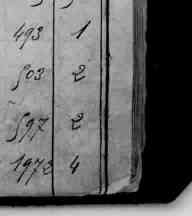 493 1
503 2
597 2
1972 4